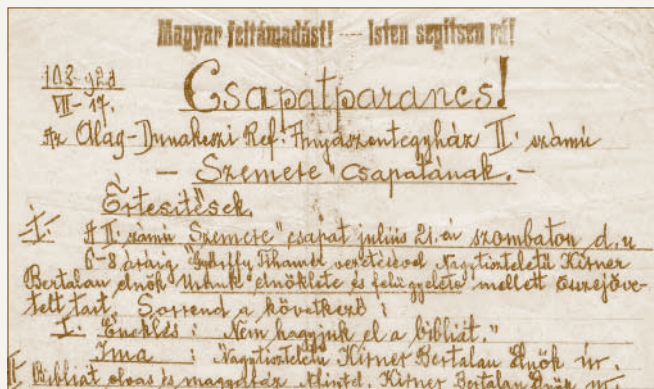 Magyar feltámadást! — Isten segítsen rá!
103-928
VII-17.
Csapatparancs!
Az Alag-Dunakeszi Ref. Anyaszentegyház II. számú
— Szemere" csapatának. —
Értesitések.
I. A II. számú Szemere" csapat július 21.-én szombaton d. u
6-8 óráig, Tihamér vezetésével Nagytiszteletű Kirner
Bertalan elnök Urunk elnöklete és felügyelete mellett összejöve-
telt tart. Sorrend a következő:
I. Éneklés: Nem hagyjuk el a bibliát."
Ima : Nagytiszteletű Kirner Bertalan Elnök úr.
II Bibliát olvas és magyaráz Kirner Bertalan Elnök